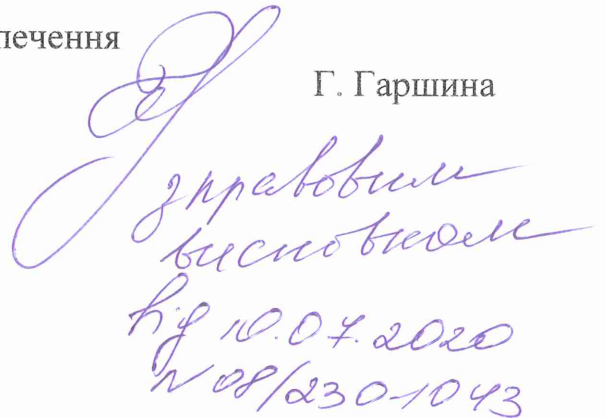 печення
Г. Гаршина
з правовим
висновком
від 10.07.2020
N 08/230-1043